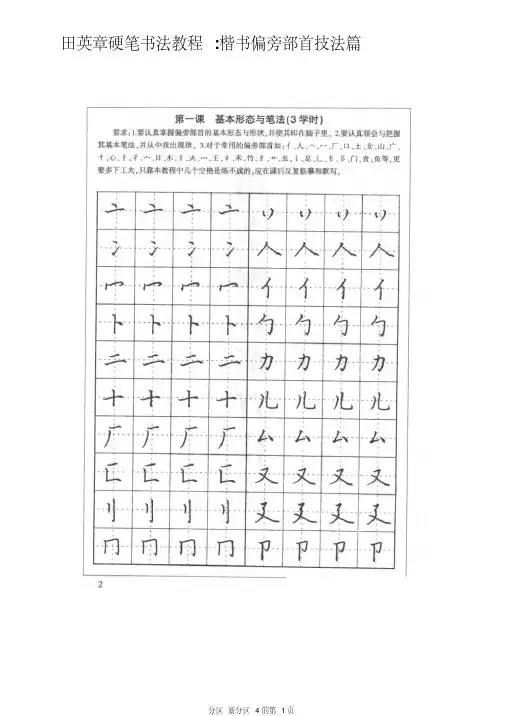 田英章硬笔书法教程 :楷书偏旁部首技法篇
第一课 基本形态与笔法(3学时)
要求:1.要认真掌握偏旁部首的基本形态与形状,并使其印在脑子里。2.要认真领会与把握
其基本笔法,并从中找出规律。3.对于常用的偏旁部首如:亻、人、亠、冖、厂、口、土、女、山、广、
忄、心、
要多下工夫,只靠本教程中几个空格是练不成的,应在课后反复临摹和默写。
亠 亠 亠 亠 丷 丷 丷 丷
冫 冫 冫 冫 人 人 人 人
冖 冖 冖 冖 亻 亻 亻 亻
卜 卜 卜 卜 勹 勹 勹 勹
二 二 二 二 力 力 力 力
十 十 十 十 儿 儿 儿 儿
厂 厂 厂 厂 厶 厶 厶 厶
匚 匚 匚 匚 又 又 又 又
刂 刂 刂 刂 廴 廴 廴 廴
冂 冂 冂 冂 卩 卩 卩 卩
2
分区 新分区 4 的第 1 页